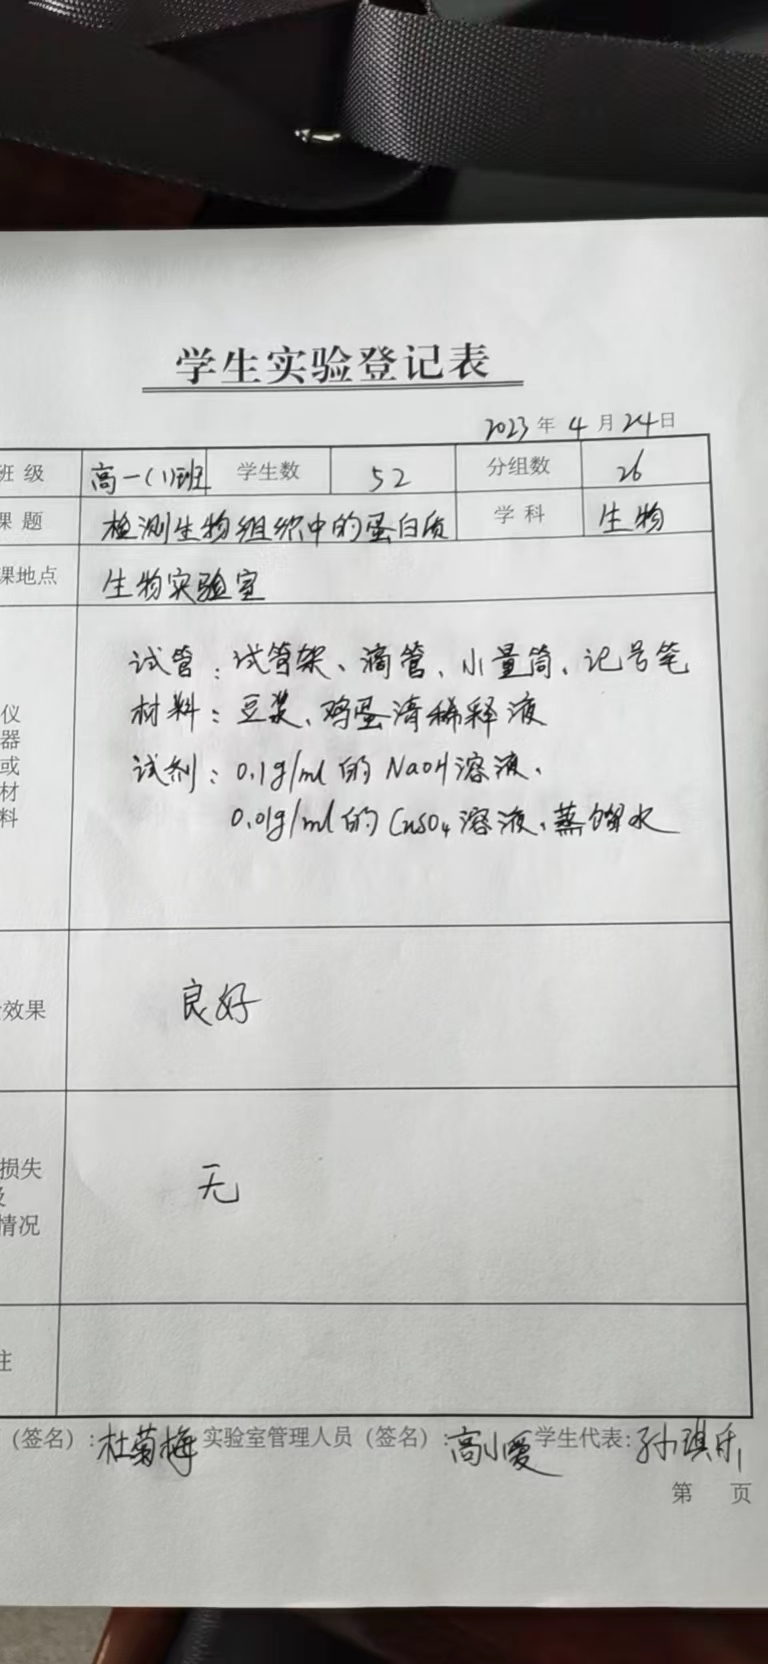 学生实验登记表
2023年4月24日
班级 高一(1)班 学生数 52 分组数 26
课题 检测生物组织中的蛋白质 学科 生物
课地点 生物实验室
仪器或材料
试管:试管架、滴管、小量筒、记号笔
材料:豆浆、鸡蛋清稀释液
试剂:0.1g/ml的NaOH溶液、
0.01g/ml的CuSO4溶液、蒸馏水
效果 良好
损失
及
情况
无
注
(签名):杜菊梅 实验室管理人员(签名):高小爱 学生代表:孙琪乐
第 页